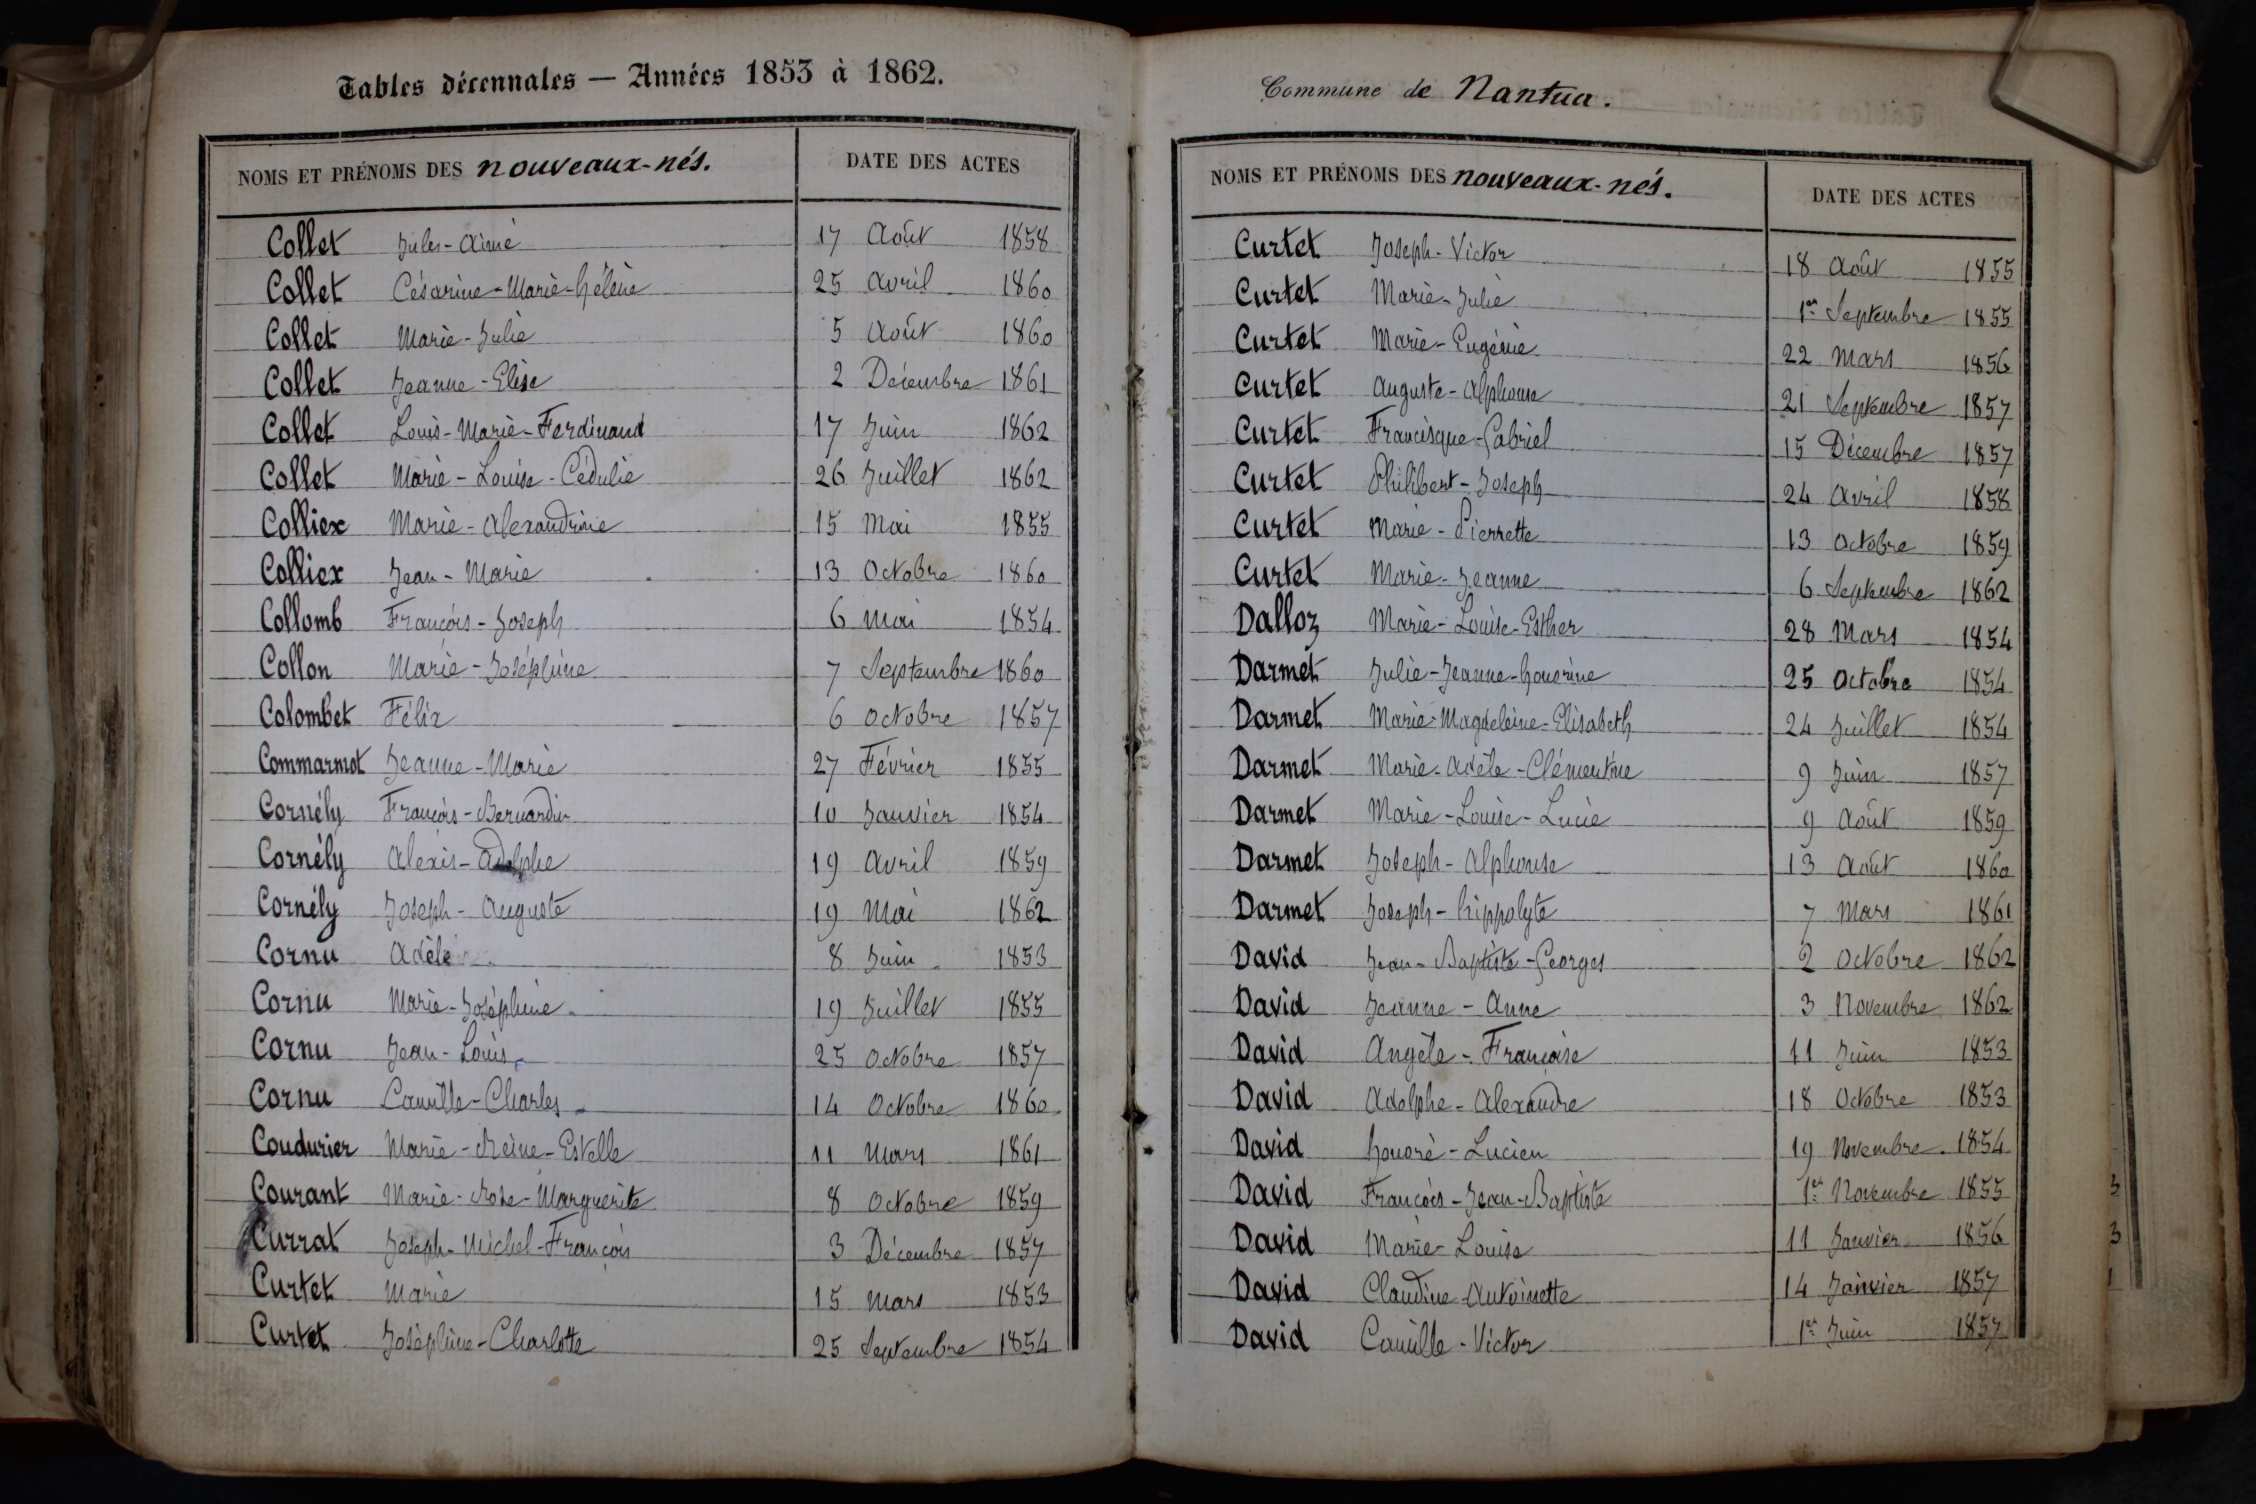 Tables décennales — Années 1853 à 1862.
NOMS ET PRÉNOMS DES nouveaux-nés. DATE DES ACTES
Collet Jules-Aimé 17 Août 1858
Collet Césarine-Marie-hélène 25 Avril 1860
Collet Marie-Julie 5 Août 1860
Collet Jeanne-Elise 2 Décembre 1861
Collet Louis-Marie-Ferdinand 17 Juin 1862
Collet Marie-Louise-Cédulie 26 Juillet 1862
Colliex Marie-Alexandrine 15 Mai 1855
Colliex Jean-Marie 13 Octobre 1860
Collomb François-Joseph 6 Mai 1854
Collon Marie-Joséphine 7 Septembre 1860
Colombet Félix 6 Octobre 1857
Commarmot Jeanne-Marie 27 Février 1855
Cornély François-Bernardin 10 Janvier 1854
Cornély Alexis-Adolphe 19 Avril 1859
Cornély Joseph-Auguste 19 Mai 1862
Cornu Adèle 8 Juin 1853
Cornu Marie-Joséphine 19 Juillet 1855
Cornu Jean-Louis 25 Octobre 1857
Cornu Camille-Charles 14 Octobre 1860
Coudurier Marie-Reine-Estelle 11 Mars 1861
Courant Marie-Rose-Marguerite 8 Octobre 1859
Currat Joseph-Michel-François 3 Décembre 1857
Curtet Marie 15 Mars 1853
Curtet Joséphine-Charlotte 25 Septembre 1854
Commune de Nantua.
NOMS ET PRÉNOMS DES nouveaux-nés. DATE DES ACTES
Curtet Joseph-Victor 18 Août 1855
Curtet Marie-Julie 1er Septembre 1855
Curtet Marie-Eugénie 22 Mars 1856
Curtet Auguste-Alphonse 21 Septembre 1857
Curtet Francisque-Gabriel 15 Décembre 1857
Curtet Philibert-Joseph 24 Avril 1858
Curtet Marie-Pierrette 13 Octobre 1859
Curtet Marie-Jeanne 6 Septembre 1862
Dalloz Marie-Louise-Esther 28 Mars 1854
Darmet Julie-Jeanne-honorine 25 Octobre 1854
Darmet Marie-Magdeleine-Elisabeth 24 Juillet 1854
Darmet Marie-Adèle-Clémentine 9 Juin 1857
Darmet Marie-Louise-Lucie 9 Août 1859
Darmet Joseph-Alphonse 13 Août 1860
Darmet Joseph-hippolyte 7 Mars 1861
David Jean-Baptiste-Georges 2 Octobre 1862
David Jeanne-Anne 3 Novembre 1862
David Angèle-Françoise 11 Juin 1853
David Adolphe-Alexandre 18 Octobre 1853
David honoré-Lucien 19 Novembre 1854
David François-Jean-Baptiste 1er Novembre 1855
David Marie-Louise 11 Janvier 1856
David Claudine-Antoinette 14 Janvier 1857
David Camille-Victor 1er Juin 1857